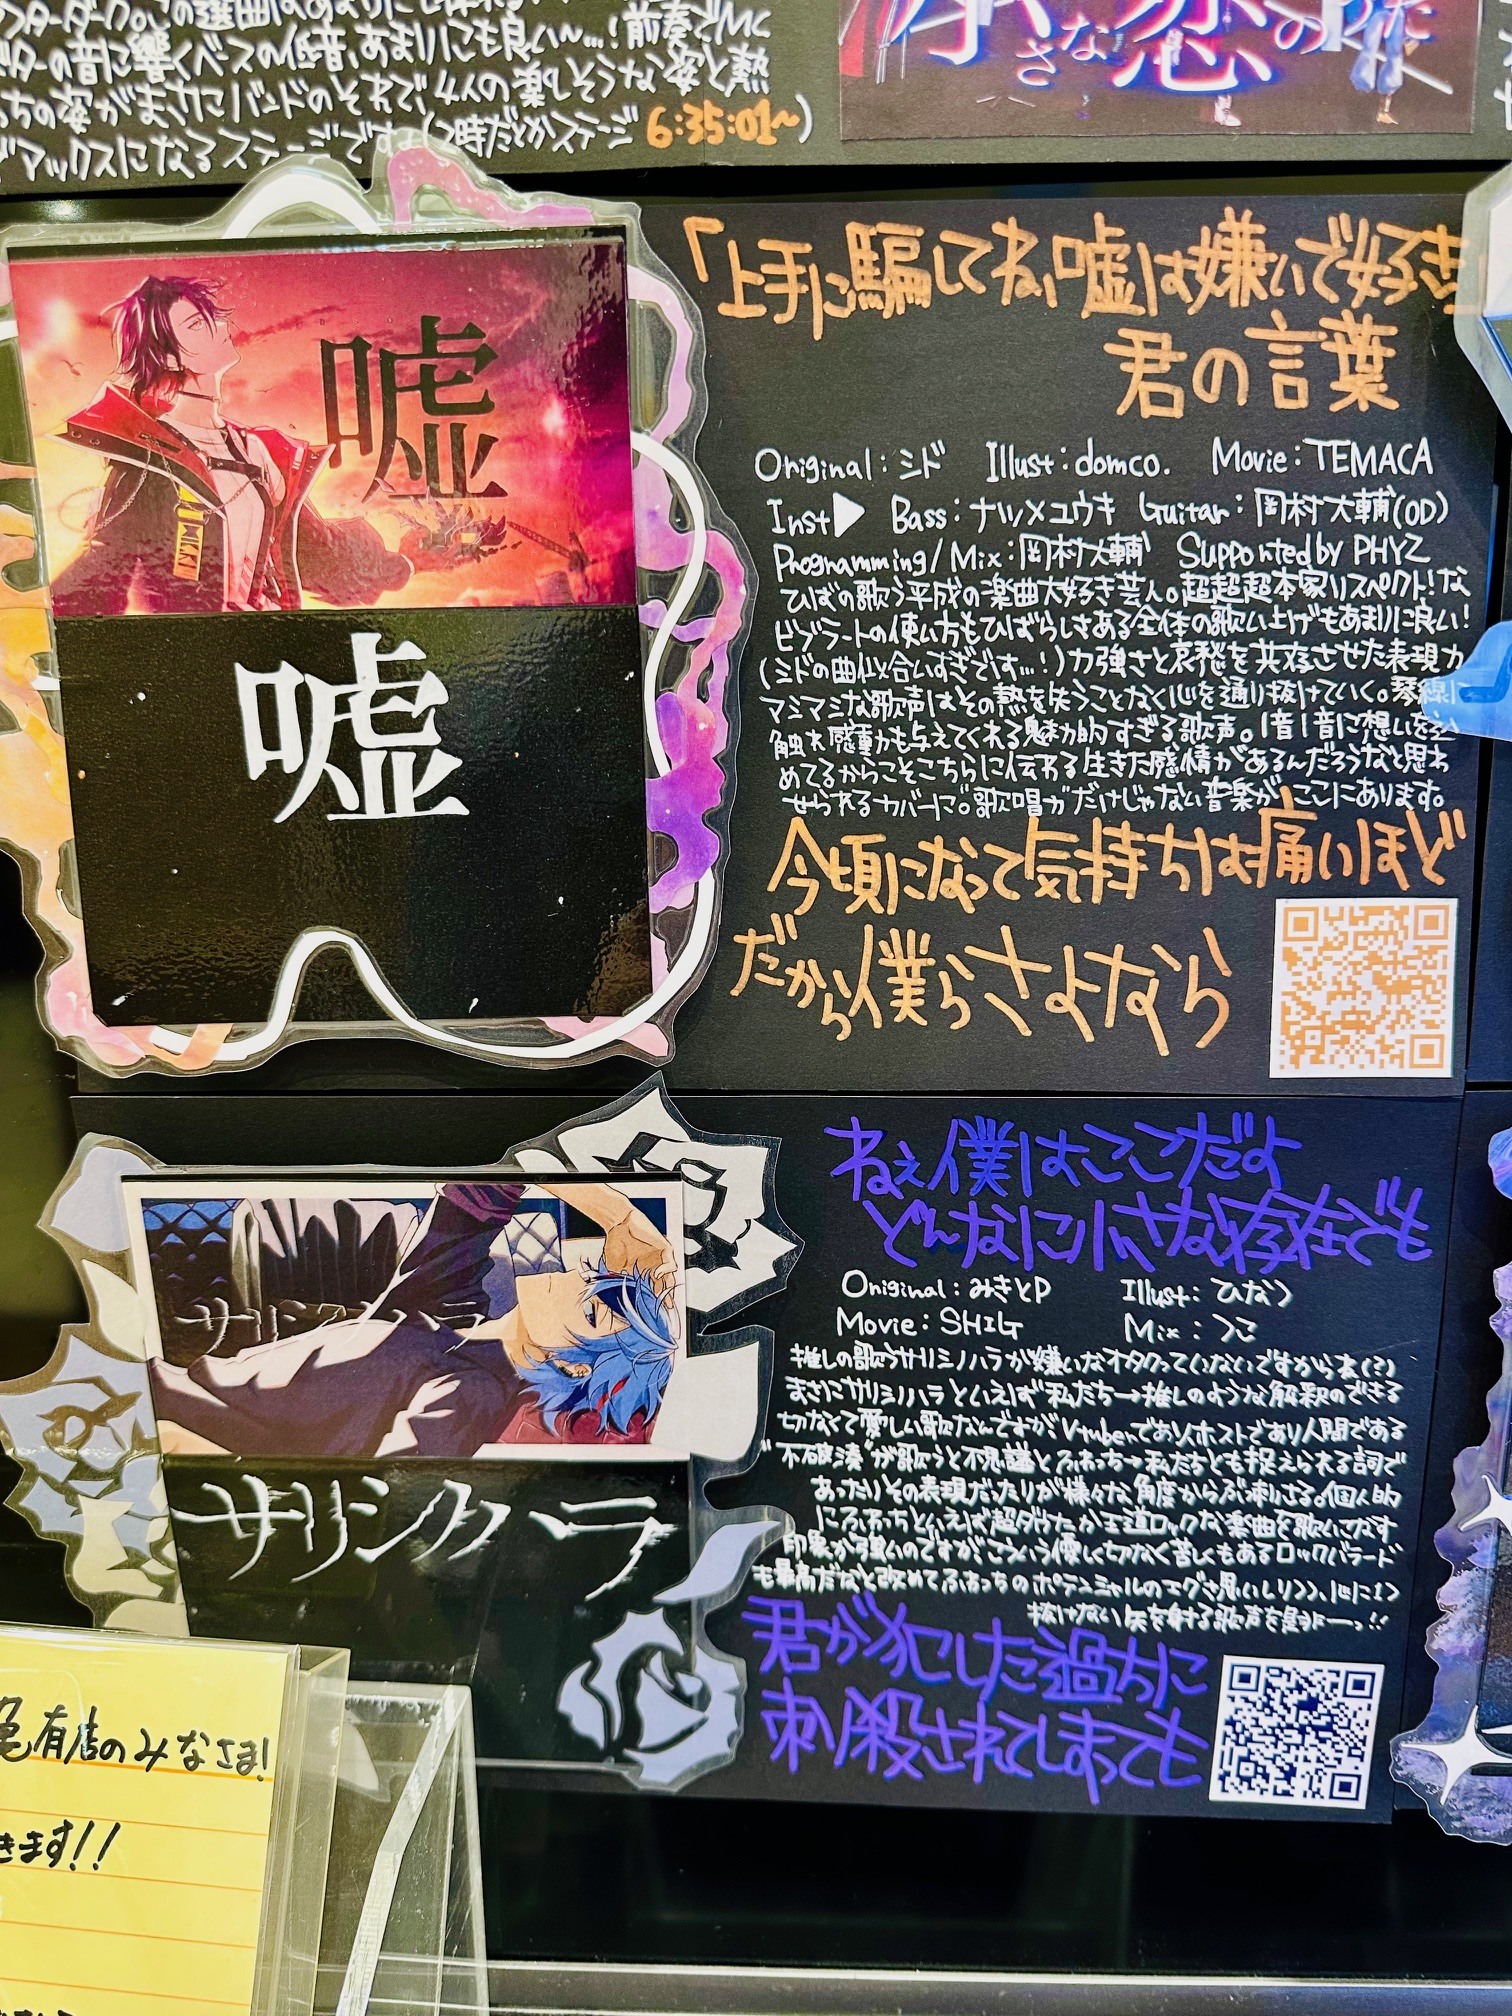 ターの音に響くベースの低音、あまりにも良い〜…!前奏でMC
ちの姿がまさにバンドのそれで4人の楽しそうな姿と熱
マックスになるステージです。(2時だとかステージ 6:35:01〜)
さな恋のうた
嘘
嘘
「上手に騙してね、嘘は嫌いで好き
君の言葉
Original:シド Illust:domco. Movie:TEMACA
Inst▶ Bass:ナツメユウキ Guitar:岡村大輔(OD)
Programming/Mix:岡村大輔 Supported by PHYZ
ひばの歌う平成の楽曲大好き芸人。超超超本家リスペクト!な
ビブラートの使い方もひばらしさある全体の歌い上げもあまりに良い!
(シドの曲似合いすぎです…!)力強さと哀愁を共存させた表現力
マシマシな歌声はその熱を失うことなく心を通り抜けていく。琴線に
触れ感動も与えてくれる魅力的すぎる歌声。1音1音に想いを込
めてるからこそこちらに伝わる生きた感情があるんだろうなと思わ
せられるカバーに。歌唱力だけじゃない音楽がここにあります。
今頃になって気持ちは痛いほど
だから僕らさよなら
サリシノハラ
サリシノハラ
ねぇ僕はここだよ
どんなに小さな存在でも
Original:みきとP Illust:ひなつ
Movie:SHIG Mix:つこ
推しの歌うサリシノハラが嫌いなオタクっていないですから表(?)
まさにサリシノハラといえば私たち→推しのような解釈のできる
切なくて愛しい歌なんですがVtuberでありホストであり人間である
"不破湊"が歌うと不思議とふわっち→私たちとも捉えられる詞で
あったりその表現だったりが様々な角度からぶっ刺さる。個人的
にふわっちといえば超ダウナーか王道ロックな楽曲を歌いこなす
印象が強いのですがこういう優しく切なく苦しくもあるロックバラード
も最高だなと改めてふわっちのポテンシャルのエグさ思いしりつつ、心に1つ
抜けない矢を射る歌声を是非ーっ!!
君が犯した過ちに
刺し殺されてしまっても
亀有店のみなさま!
きます!!